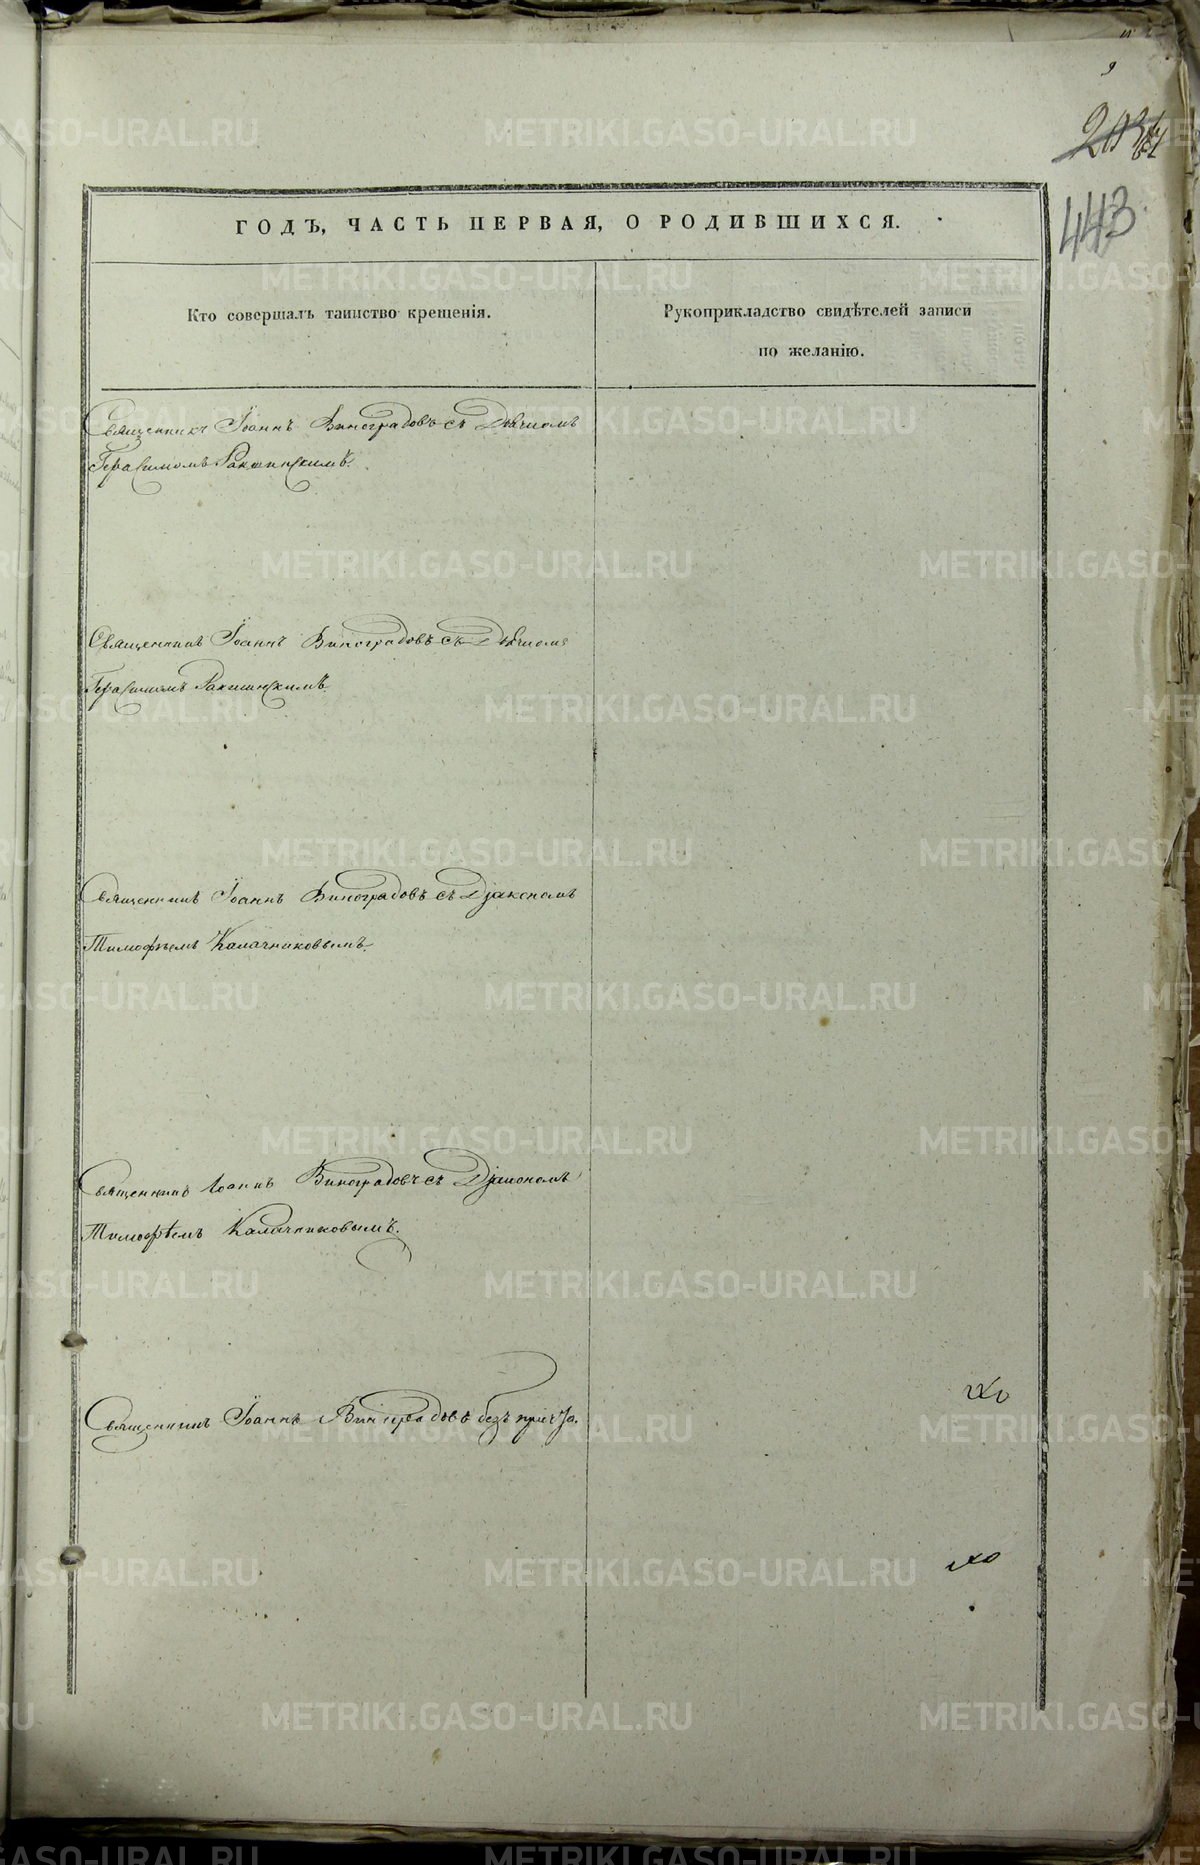 9
443
ГОДЪ, ЧАСТЬ ПЕРВАЯ, О РОДИВШИХСЯ.
Кто совершалъ таинство крещенія.
Рукоприкладство свидѣтелей записи
по желанію.
Священникъ Іоаннъ Виноградовъ съ Дьячкомъ
Герасимомъ
Священникъ Іоаннъ Виноградовъ съ Дьячкомъ
Герасимомъ
Священникъ Іоаннъ Виноградовъ съ Діакономъ
Тимофѣемъ Калачниковымъ.
Священникъ Іоаннъ Виноградовъ съ Діакономъ
Тимофѣемъ Калачниковымъ.
Священникъ Іоаннъ Виноградовъ безъ причта.
METRIKI.GASO-URAL.RU